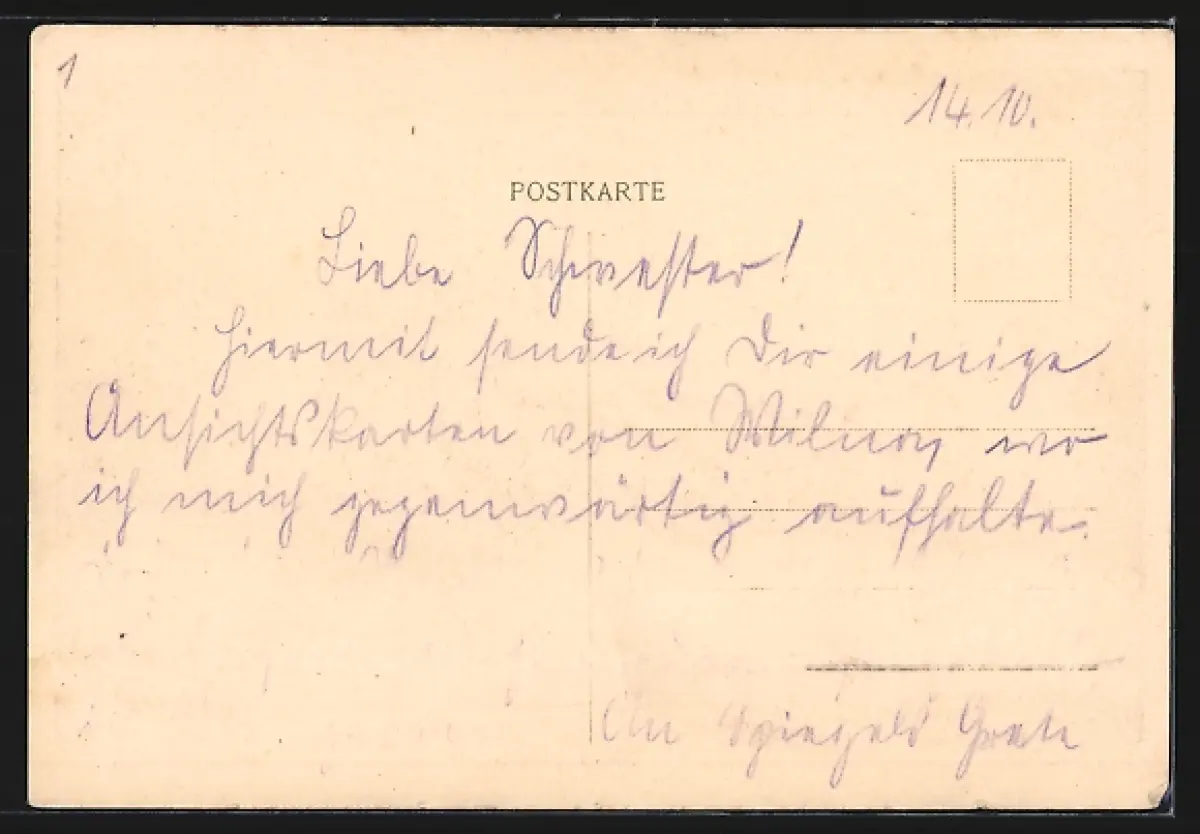 1
14.10.
POSTKARTE
Liebe Schwester!
Hiermit sende ich Dir einige
Ansichtskarten von Wilna, wo
ich mich gegenwärtig aufhalte.
An Spiegels Grete